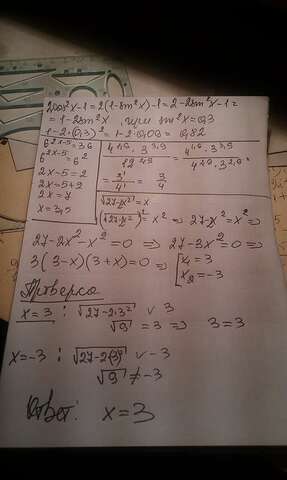 2cos²x-1=2(1-sin²x)-1=2-2sin²x-1=
=1-2sin²x, sin²x=0,3
1-2·(0,3)²=1-2·0,09=0,82
6^{2x-5}=36
6^{2x-5}=6²
2x-5=2
2x=5+2
2x=7
x=3,5
=\frac{3^1}{4^1}=\frac{3}{4}
√(27-2x²)=x
(√(27-2x²))²=x² ⇒ 27-2x²=x² ⇒
27-2x²-x²=0 ⇒ 27-3x²=0 ⇒
3(3-x)(3+x)=0 ⇒ [x₁=3
x₂=-3
Проверка
x=3: √(27-2·3²) ∨ 3
√9=3 ⇒ 3=3
x=-3: √(27-2(-3)²) ∨ -3
√9≠-3
Ответ: x=3